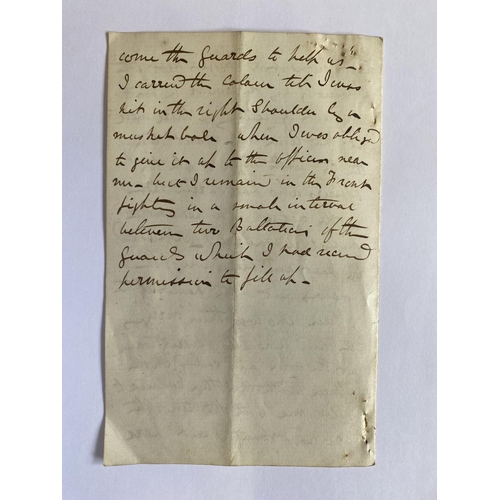 come the Guards to help us –
I carried the Colour till I was
hit in the right Shoulder by a
musket ball – when I was obliged
to give it up to the officer near
me – but I remained in the Front
fighting in a small interval
between two Battalions of the
Guards which I had received
permission to fill up –